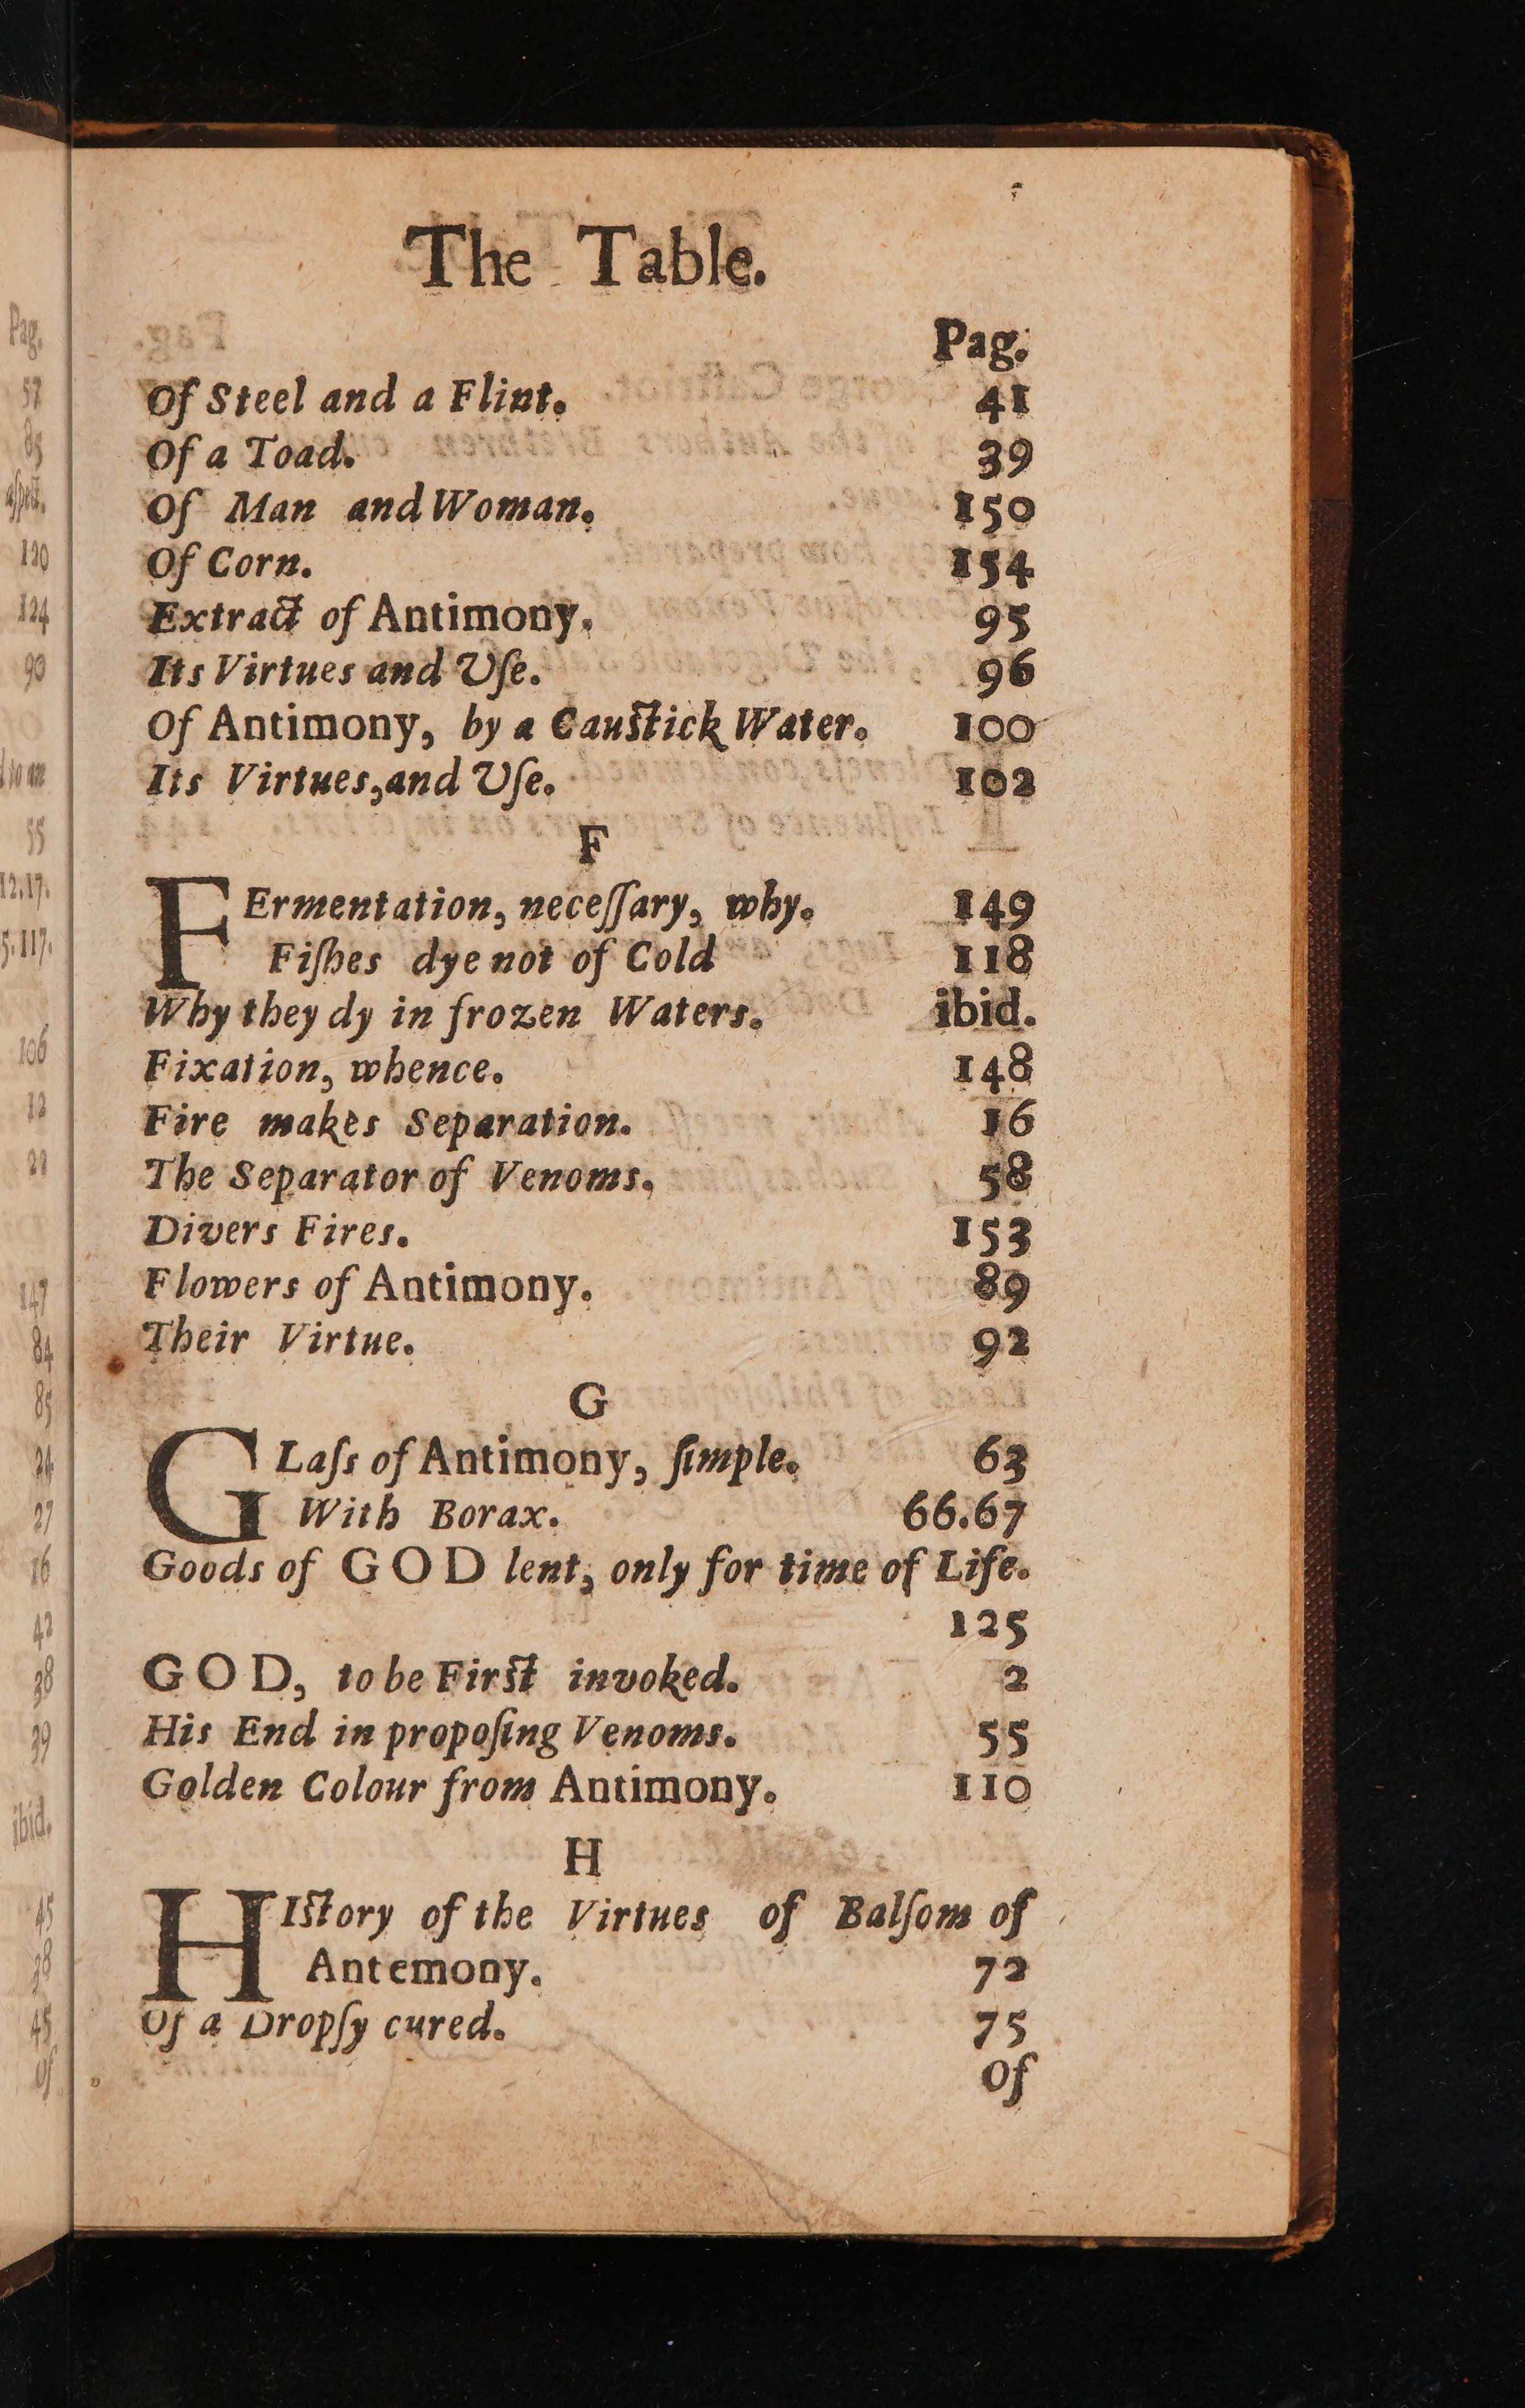 The Table.
Pag.
Of Steel and a Flint. 41
Of a Toad. 39
Of Man and Woman. 150
Of Corn. 154
Extract of Antimony. 95
Its Virtues and Uſe. 96
Of Antimony, by a Cauſtick Water. 100
Its Virtues, and Uſe. 102
F
FErmentation, neceſſary, why. 149
Fiſhes dye not of Cold 118
Why they dy in frozen Waters. ibid.
Fixation, whence. 148
Fire makes Separation. 16
The Separator of Venoms. 58
Divers Fires. 153
Flowers of Antimony. 89
Their Virtue. 92
G
GLaſs of Antimony, ſimple. 63
With Borax. 66.67
Goods of GOD lent, only for time of Life.
125
GOD, to be Firſt invoked. 2
His End in propoſing Venoms. 55
Golden Colour from Antimony. 110
H
HIſtory of the Virtues of Balſom of
Antemony. 72
Of a Dropſy cured. 75
Of
Pag.
57
85
aſpect.
120
124
90
55
12.17.
5.117.
106
12
22
147
84
85
24
27
16
42
38
39
ibid.
45
38
45
Of